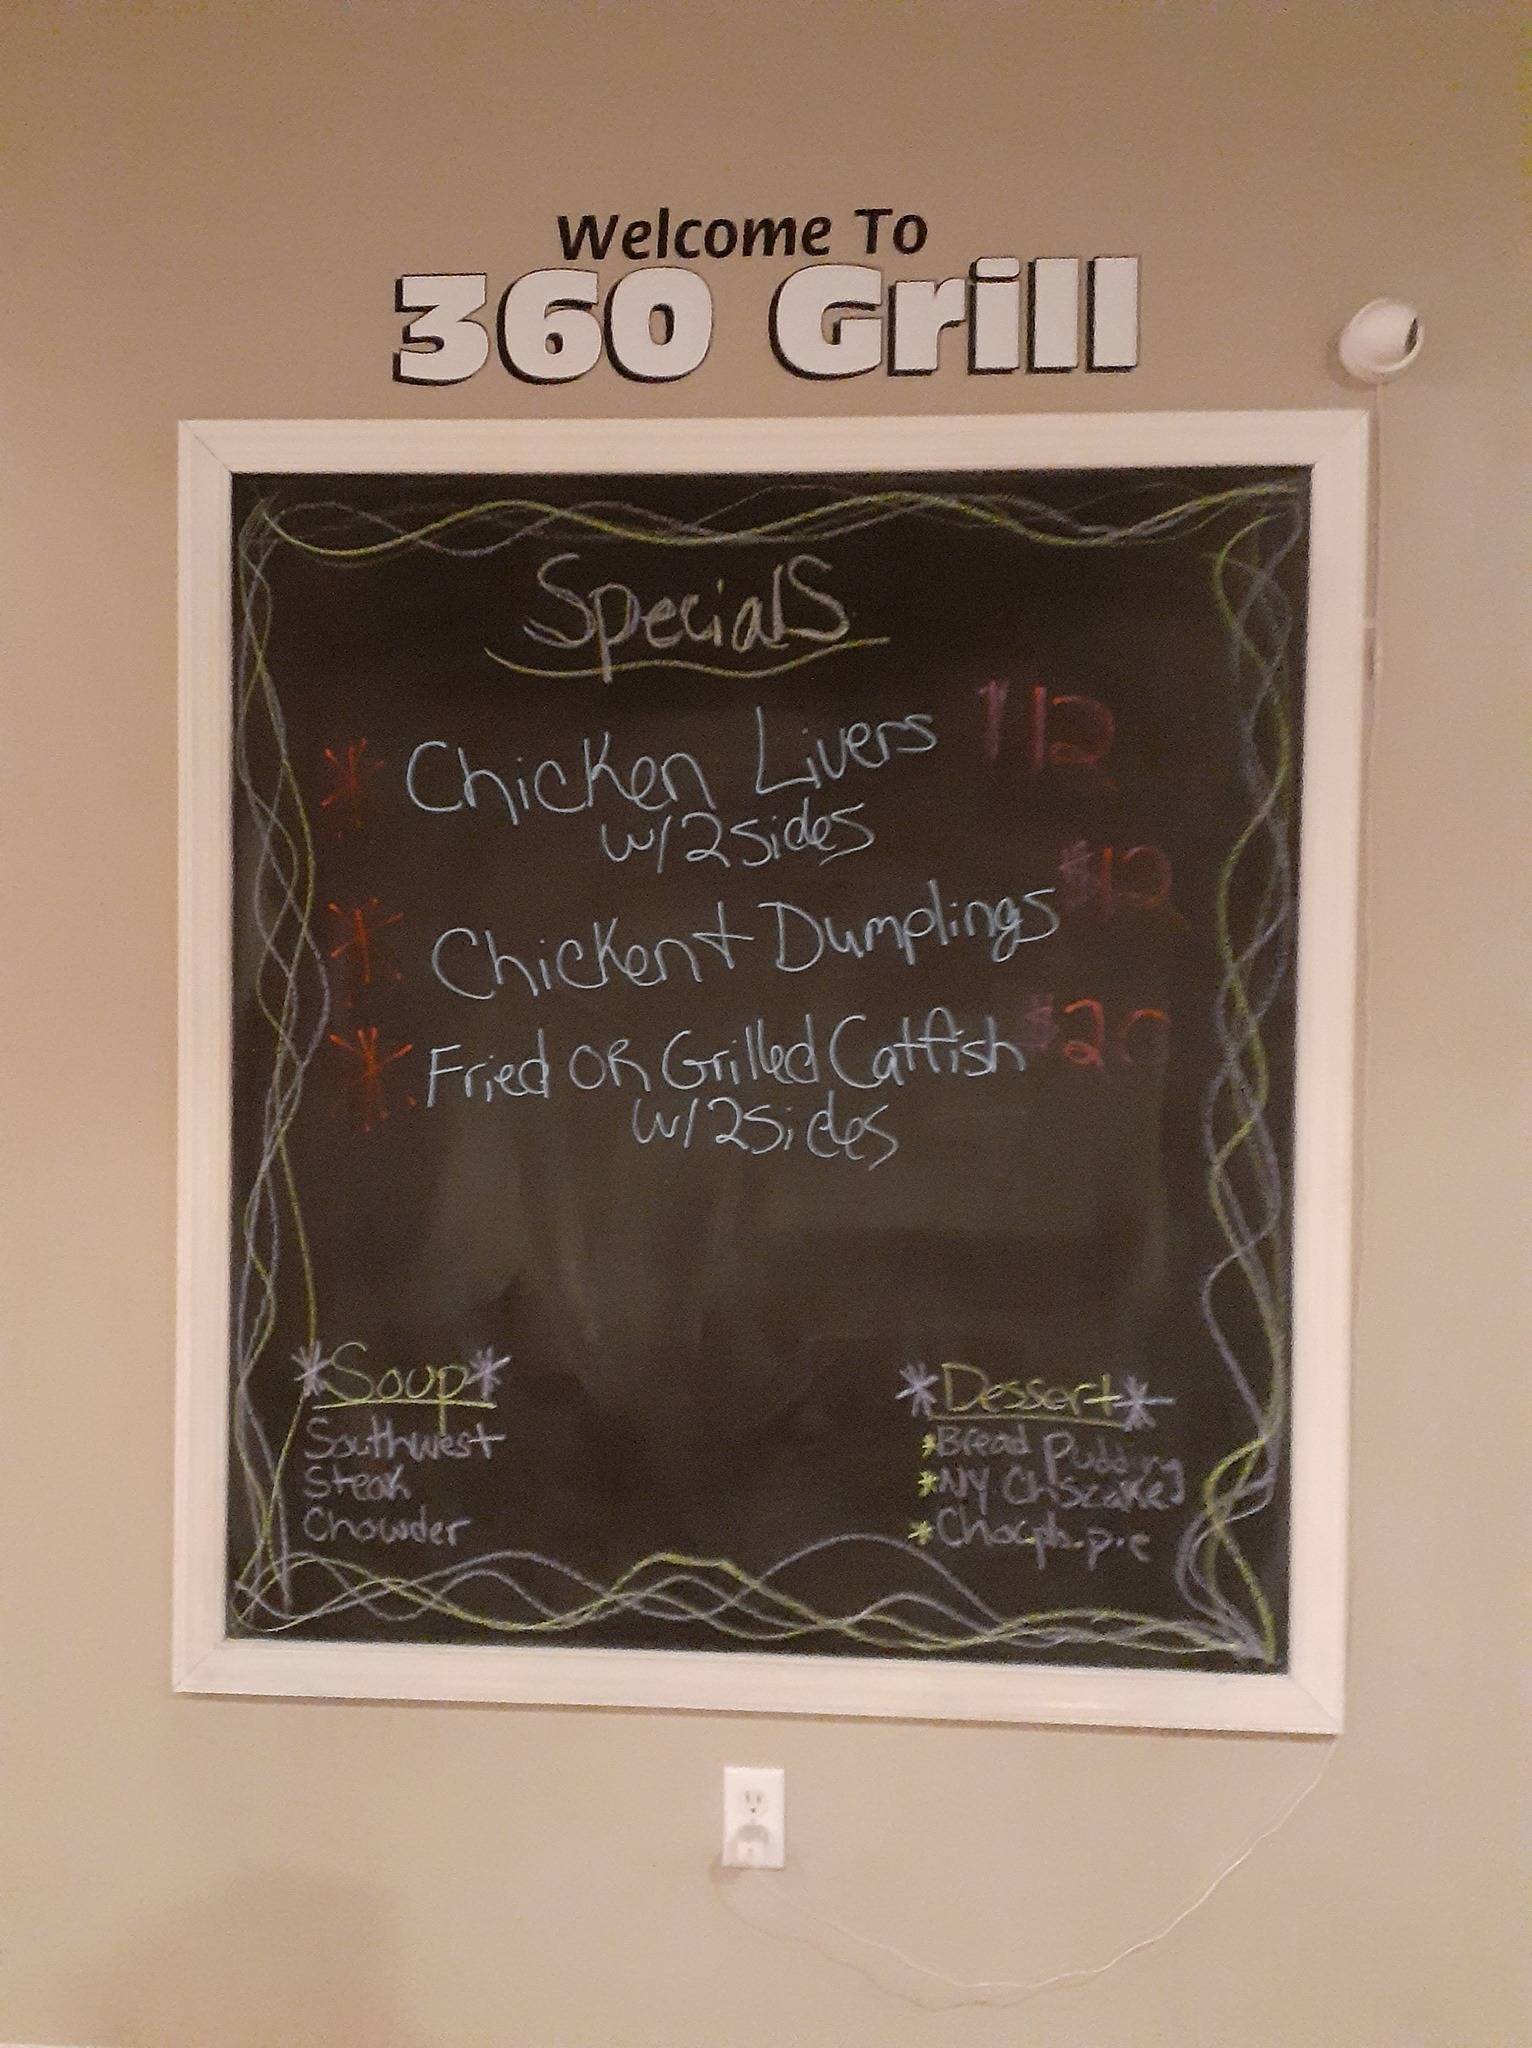 Welcome To
360 Grill
Specials
* Chicken Livers $12
w/2 sides
* Chicken + Dumplings $12
* Fried OR Grilled Catfish $20
w/2 sides
*Soup*
Southwest
Steak
Chowder
*Dessert*
*Bread Pudding
*NY Chscake
* pie